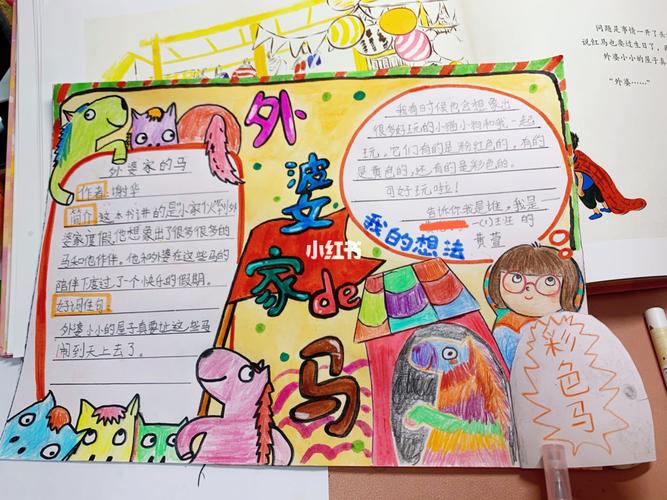 外婆家de马
外婆家的马
作者:谢华
简介:这本书讲的是“小家伙”到外
婆家度假,他想象出了很多很多的
马和他作伴。他和外婆在这些马的
陪伴下度过了一个快乐的假期。
好词佳句:
外婆小小的屋子真要让这些马
闹到天上去了。
我有时候也会想象出
很多好玩的小猫小狗和我一起
玩,它们有的是粉红色的,有的
是黄色的,还有的是彩色的。
可好玩啦!
告诉你我是谁,我是
一(1)班的
黄萱
我的想法
彩色马
小红书
问题是事情一开了头
说红马也要过生日了,
外婆小小的屋子真
“外婆……”